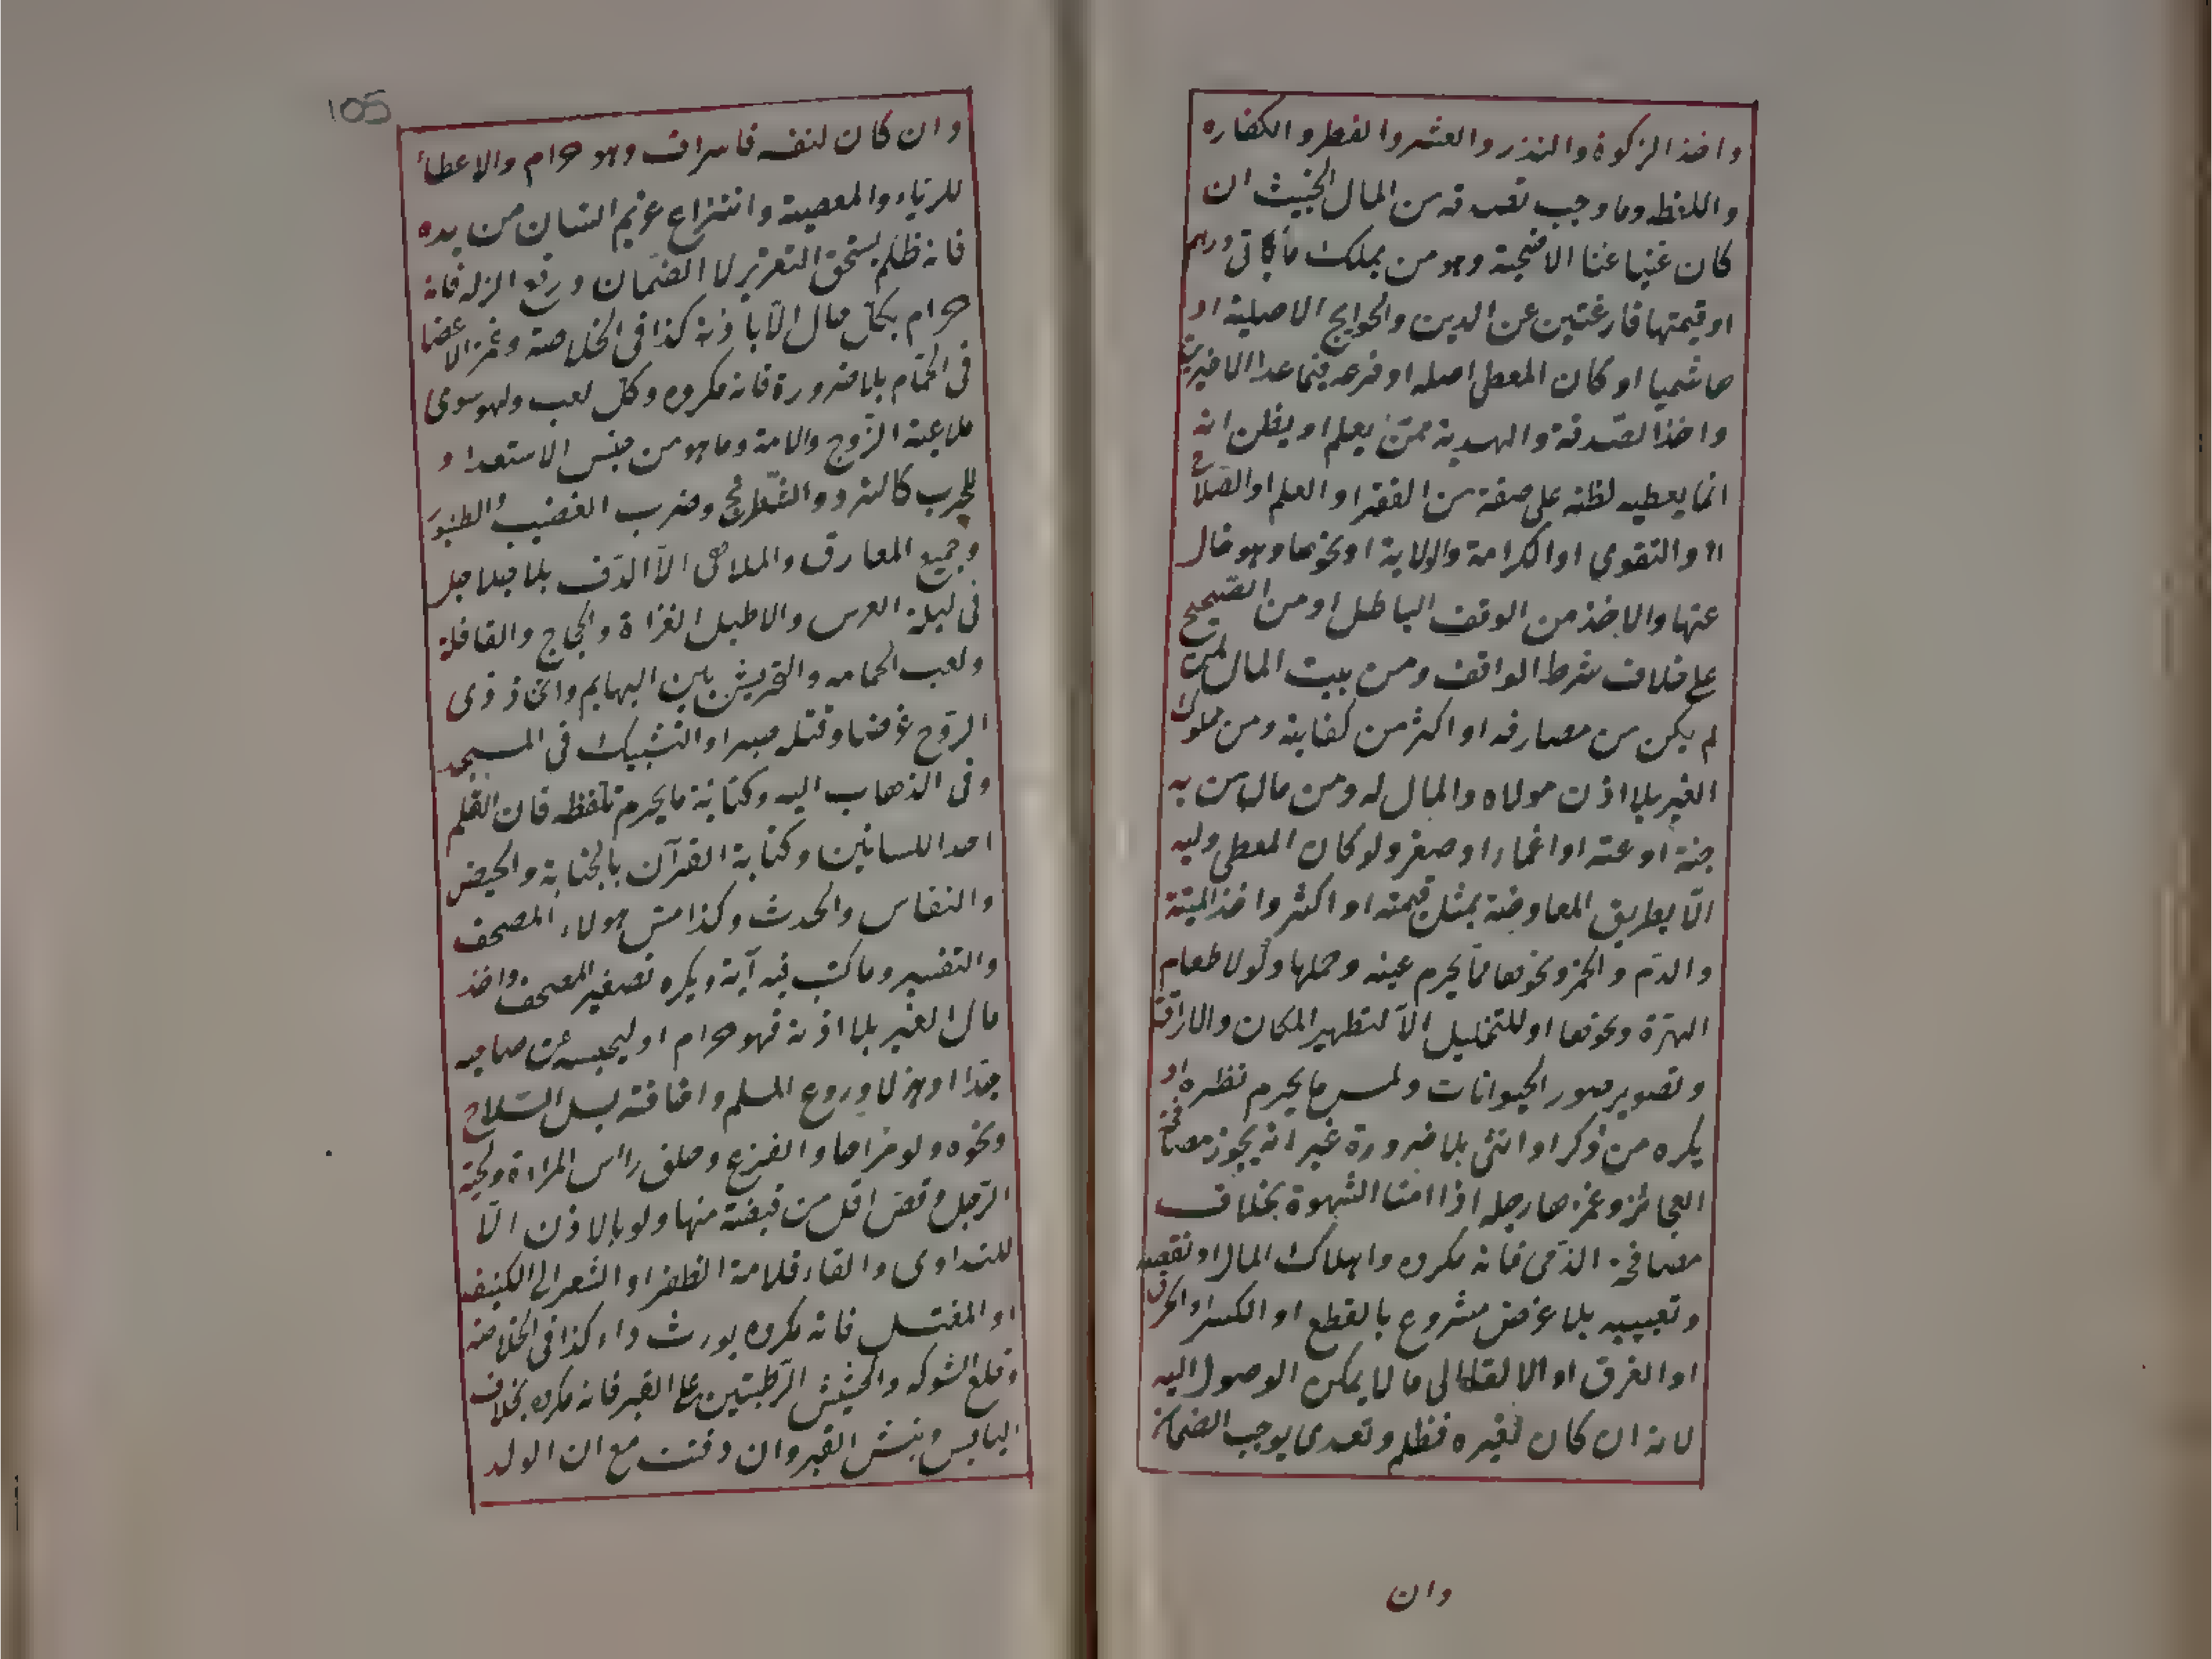 واخذ الزكوة والنذر والعشر والفطر والكفاره
واللقطه وما وجب تصدقه من المال الخبيث ان
كان غنيا غنا الاضحية وهو من يملك مأتى درهم
او قيمتها فارغتين عن الدين والحوايج الاصلية او
هاشميا او كان المعطى اصله او فرعه فيما عدا الاخيرين
واخذ الصّدقة والهدية ممّن يعلم او يظن انه
انما يعطيه لظنه على صفة من الفقر او العلم او الصّلاح
او التقوى او الكرامة والولاية او نحوها وهو خال
عنها والاخذ من الوقف الباطل او من الصّحيح
على خلاف شرط الواقف ومن بيت المال لمن
لم يكن من مصارفه او اكثر من كفايته ومن مملوك
الغير بلا اذن مولاه والمال له ومن مال من به
جنة او عته او اغماء او صغر ولو كان المعطى وليه
الّا بطريق المعاوضة بمثل قيمته او اكثر واخذ الميتة
والدّم والخمر ونحوها ممّا يحرم عينه وحملها ولو لاطعام
الهرّة ونحوها او للتخليل الّا لتطهير المكان والاراقة
وتصوير صور الحيوانات ولمس ما يحرم نظره او
يكره من ذكر او انثى بلا ضرورة غير انه يجوز مصافحة
العجائز وغمزها رجله اذا امنا الشهوة بخلاف
مصافحة الذّمى فانه مكروه واهلاك المال او نقصه
وتعييبه بلا غرض مشروع بالقطع او الكسر او الحرق
او الغرق او الالقا الى ما لا يمكن الوصول اليه
لانه ان كان لغيره فظلم وتعدى يوجب الضمان
وان
105
وان كان لنفسه فاسراف وهو حرام والاعطاء
للرياء والمعصية وانتزاع غريم انسان من يده
فانه ظلم يستحق التعزير لا الضّمان ورفع الزله فانه
حرام بكلّ حال الّا باذنه كذا فى الخلاصة وغمز الاعضا
فى الحمّام بلا ضرورة فانه مكروه وكلّ لعب ولهو سوى
ملاعبة الزّوج والامة وما هو من جنس الاستعداد
للحرب كالنرد والشّطرنج وضرب القضيب والطنبور
وجميع المعازف والملاهى الّا الدّف بلا جلاجل
فى ليلة العرس والاطبل الغزاة والحجاج والقافلة
ولعب الحمامه والتحريش بين البهايم واتخاذ ذى
الرّوح غرضا وقتله صبرا والتشبيك فى المسجد
وفى الذهاب اليه وكتابة ما يحرم تلفّظه فان القلم
احد اللسانين وكتابة القرآن بالجنابة والحيض
والنفاس والحدث وكذا مسّ هولاء المصحف
والتفسير وما كتب فيه آية ويكره تصغير المصحف واخذ
مال الغير بلا اذنه فهو حرام او ليحبسه عن صاحبه
جدّا او هزلا وروع المسلم واخافته بسل السّلاح
ونحوه ولو مزاحا والقزع وحلق رأس المراءة ولحية
الرّجل وقصّ اقل من قبضة منها ولو بالاذن الّا
للتداوى والقاء قلامة الظفر او الشعر الى الكنيف
او المغتسل فانه مكروه يورث داء كذا فى الخلاصة
وقلع الشوكه والحشيش الرّطبتين على القبر فانه مكروه بخلاف
اليابس ونبش القبر وان دفنت مع ان الولد